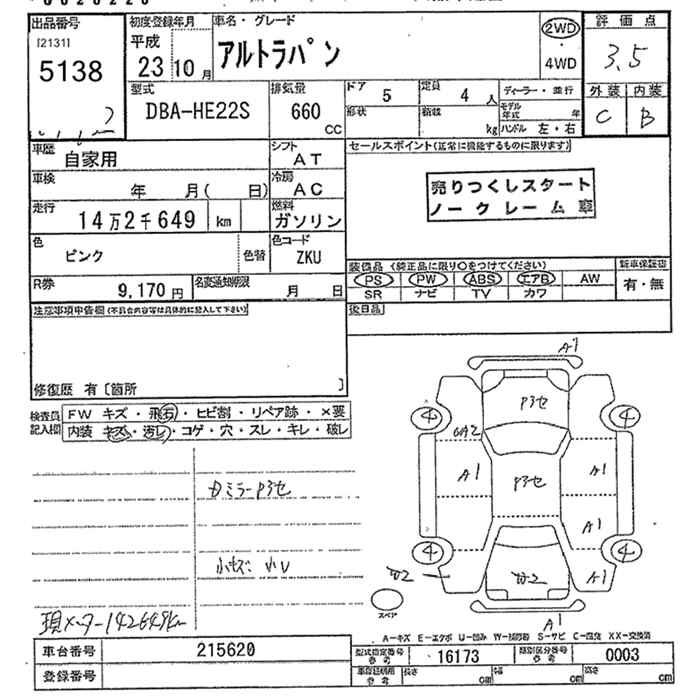 出品番号 初度登録年月 車名・グレード 評価点
[2131] 平成 2WD 3.5
5138 23 10月 アルトラパン 4WD
型式 排気量 ドア 5 定員 4人 ディーラー・並行 外装 内装
DBA-HE22S 660 CC 形状 kg モデル年式 年 C B
ハンドル 左・右
車歴 自家用 シフト AT セールスポイント(正常に機能するものに限ります)
車検 年 月( 日) 冷房 AC 売りつくしスタート
走行 14万2千649 km 燃料 ガソリン ノークレーム車
色 ピンク 色替 色コード ZKU
装備品 (純正品に限り○をつけてください) 新車保証書
R券 9,170円 名変通知期限 月 日 PS PW ABS エアB AW 有・無
SR ナビ TV カワ
注意事項申告欄(不具合内容等は具体的に記入して下さい) 後日品
修復歴 有〔箇所 〕
検査員 FW キズ・飛石・ヒビ割・リペア跡・×要
記入欄 内装 キズ・汚レ・コゲ・穴・スレ・キレ・破レ
A1
P3セ
4 4
A2
A1 P3セ A1
A1
4 4
A1
A1
スペア
A-キズ E-エクボ U-凹み W-補修跡 S-サビ C-腐蝕 XX-交換済
現メーター142649km
車台番号 215620 型式指定番号 参考 16173 類別区分番号 参考 0003
登録番号 長さ cm 幅 cm 高さ cm